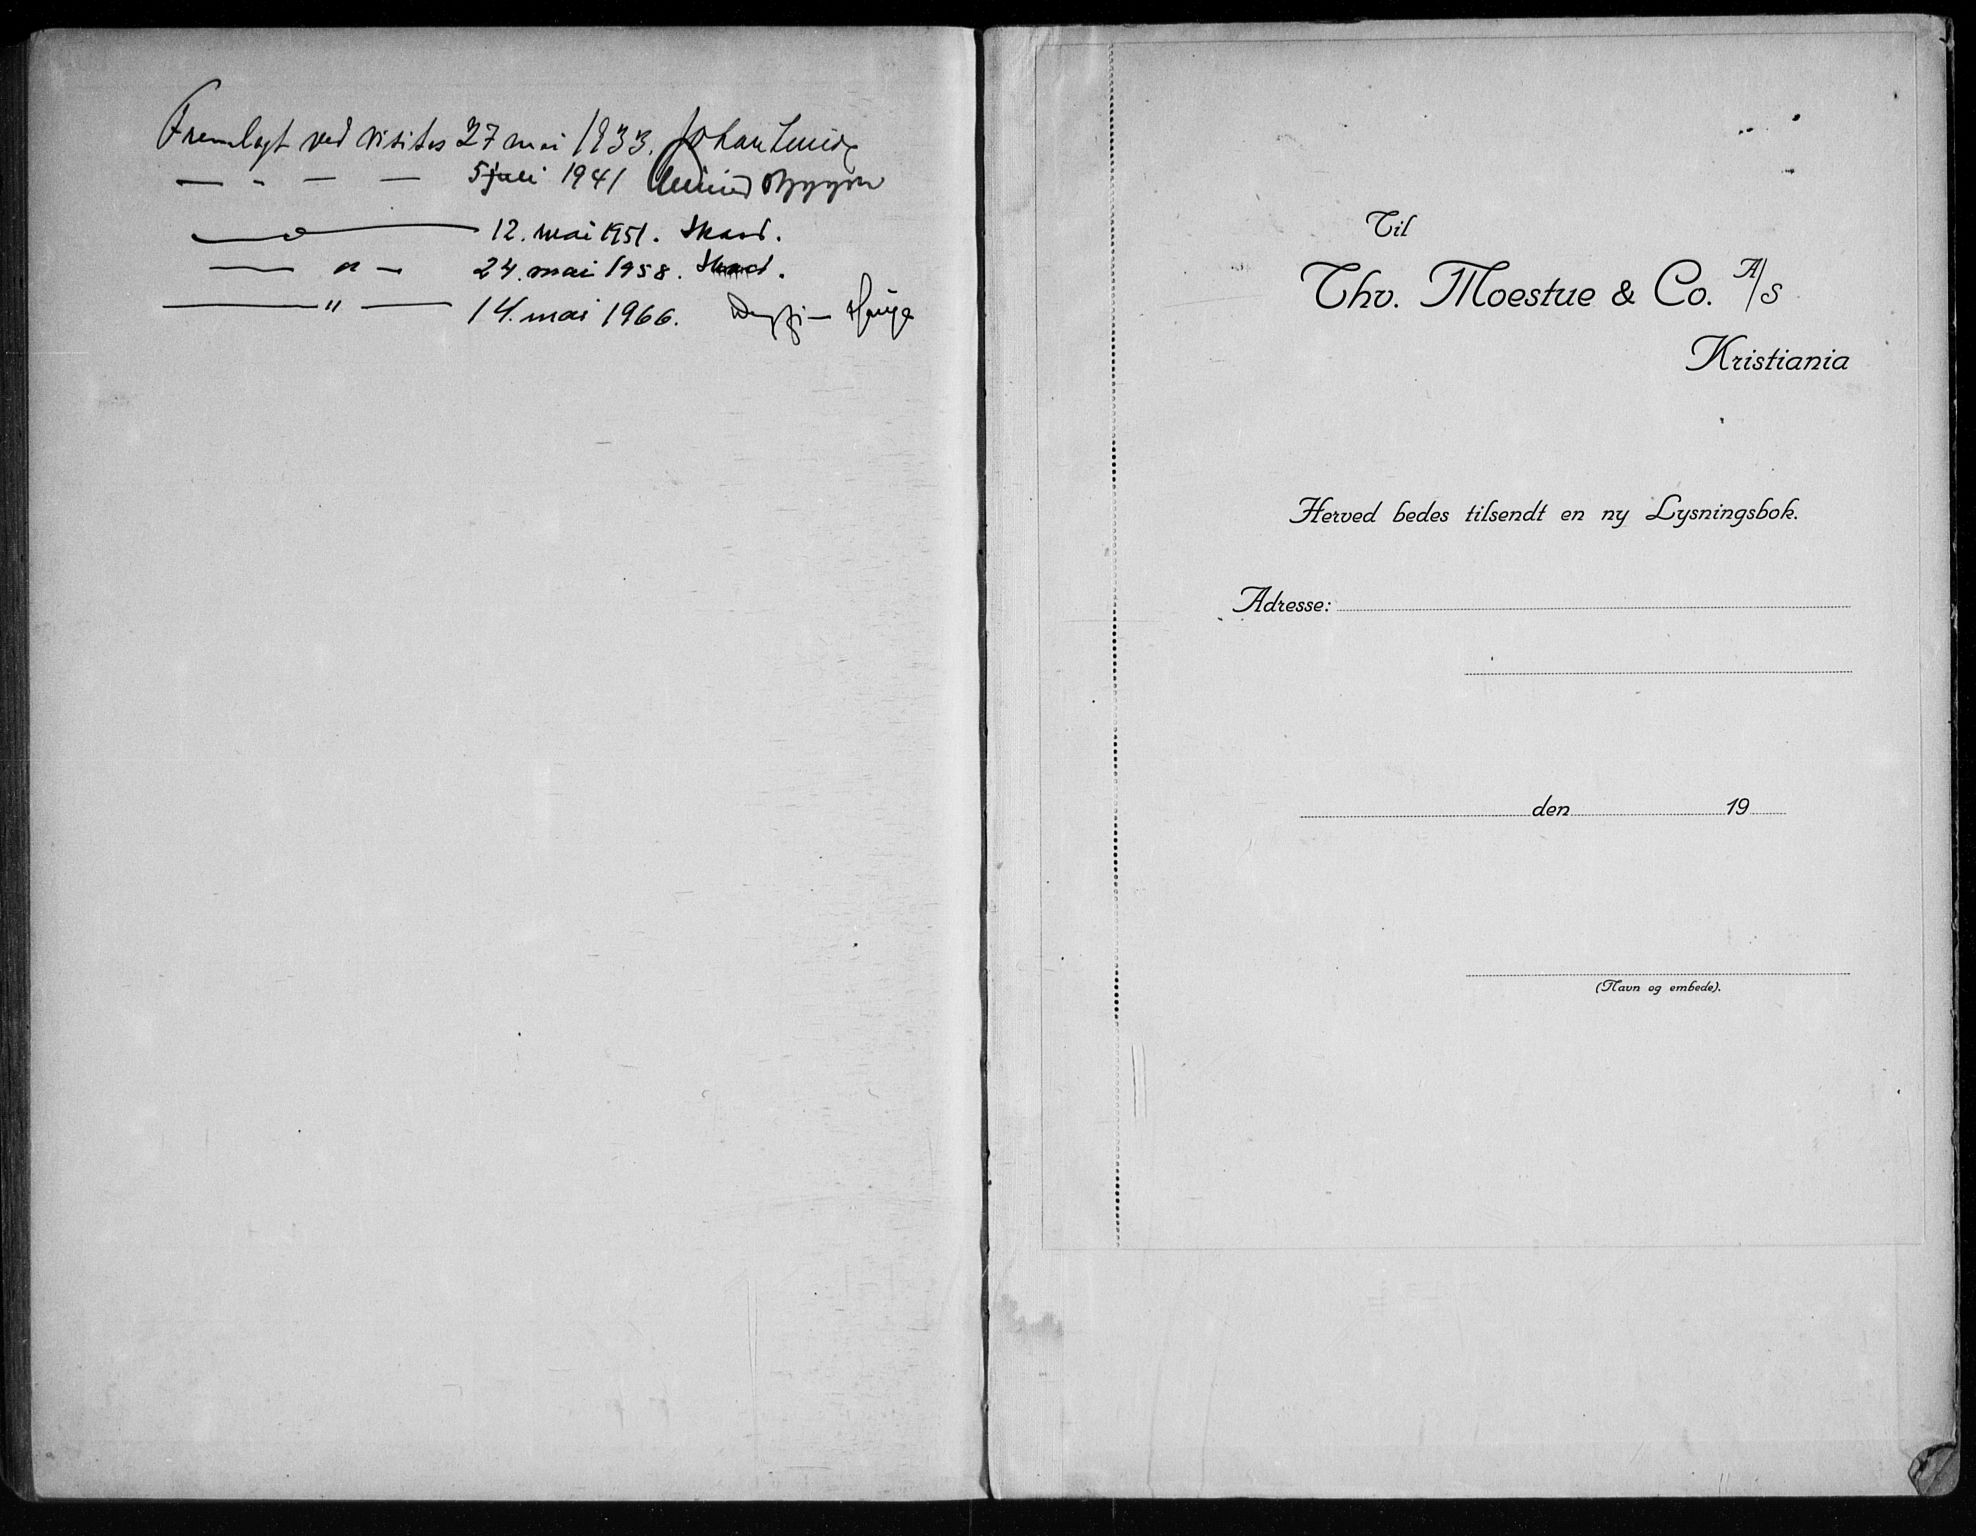 Fremlagt ved visitas 27 mai 1933. Johan Lunde
— " — — 5 juli 1941
— " — 12. mai 1951. Skard.
— " — 24. mai 1958. Skard.
— " — 14. mai 1966. Hauge
Til
Thv. Moestue & Co. A/S
Kristiania
Herved bedes tilsendt en ny Lysningsbok.
Adresse:
den 19
(Navn og embede).